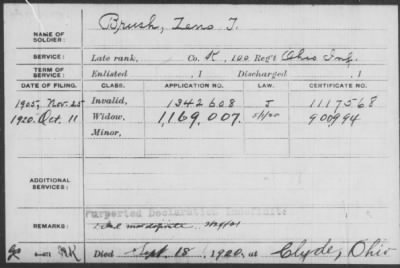 Brush, Zeno T.
NAME OF
SOLDIER:
SERVICE: Late rank, Co. K, 100 Reg't Ohio Inf.
TERM OF
SERVICE: Enlisted , 1 Discharged , 1
DATE OF FILING. CLASS. APPLICATION NO. LAW. CERTIFICATE NO.
1905, Nov. 25 Invalid, 1342608 J 1117568
1920 Oct. 11 Widow, 1,169,007. 5/1/20 900,994
Minor,
ADDITIONAL
SERVICES:
Purported Declaration Indefinite
REMARKS:
Died Sept. 18, 1920, at Clyde, Ohio